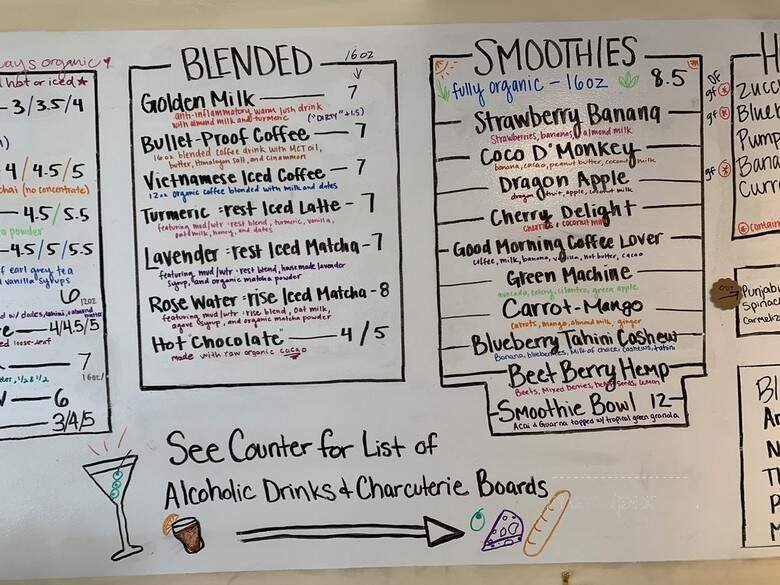 ways organic
hot or iced
3/3.5/4
4/4.5/5
chai (no concentrate)
4.5/5.5
powder
4.5/5/5.5
f earl grey tea
vanilla syrups
6 12oz
4/4.5/5
7
16oz
6
3/4/5
BLENDED
16oz
Golden Milk 7
anti-inflammatory warm lush drink
with almond milk and turmeric ("DIRTY" +1.5)
Bullet-Proof Coffee 7
16oz blended coffee drink with MCT oil,
butter, Himalayan salt, and cinnammon
Vietnamese Iced Coffee 7
12oz organic coffee blended with milk and dates
Turmeric :rest Iced Latte - 7
featuring mud/wtr :rest blend, turmeric, vanilla,
oat milk, honey, and dates
Lavender :rest Iced Matcha - 7
featuring mud/wtr :rest blend, housemade lavender
syrup, and organic matcha powder
Rose Water :rise Iced Matcha - 8
featuring mud/wtr :rise blend, oat milk,
agave syrup, and organic matcha powder
Hot Chocolate 4/5
made with raw organic cacao
SMOOTHIES
fully organic - 16oz 8.5
Strawberry Banana
Strawberries, bananas, almond milk
Coco D'Monkey
banana, cacao, peanut butter, coconut milk
Dragon Apple
dragon fruit, apple, coconut milk
Cherry Delight
cherries & coconut milk
Good Morning Coffee Lover
coffee, milk, banana, vanilla, nut butter, cacao
Green Machine
avocado, celery, cilantro, green apple
Carrot-Mango
carrots, mango, almond milk, ginger
Blueberry Tahini Cashew
Banana, blueberries, milk of choice, cashews, tahini
Beet Berry Hemp
Beets, Mixed berries, hemp seeds, lemon
Smoothie Bowl 12
Acai & Guarna topped w/ tropical green granola
H
DF
gf Zucc
gf Blue
Pump
gf Bana
Curr
contain
OUT
Punjabi
Spinac
Carmeliz
See Counter for List of
Alcoholic Drinks & Charcuterie Boards